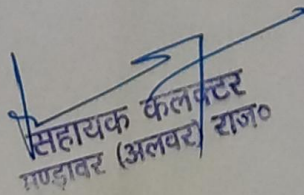 सहायक कलक्टर
मण्डावर (अलवर) राज०